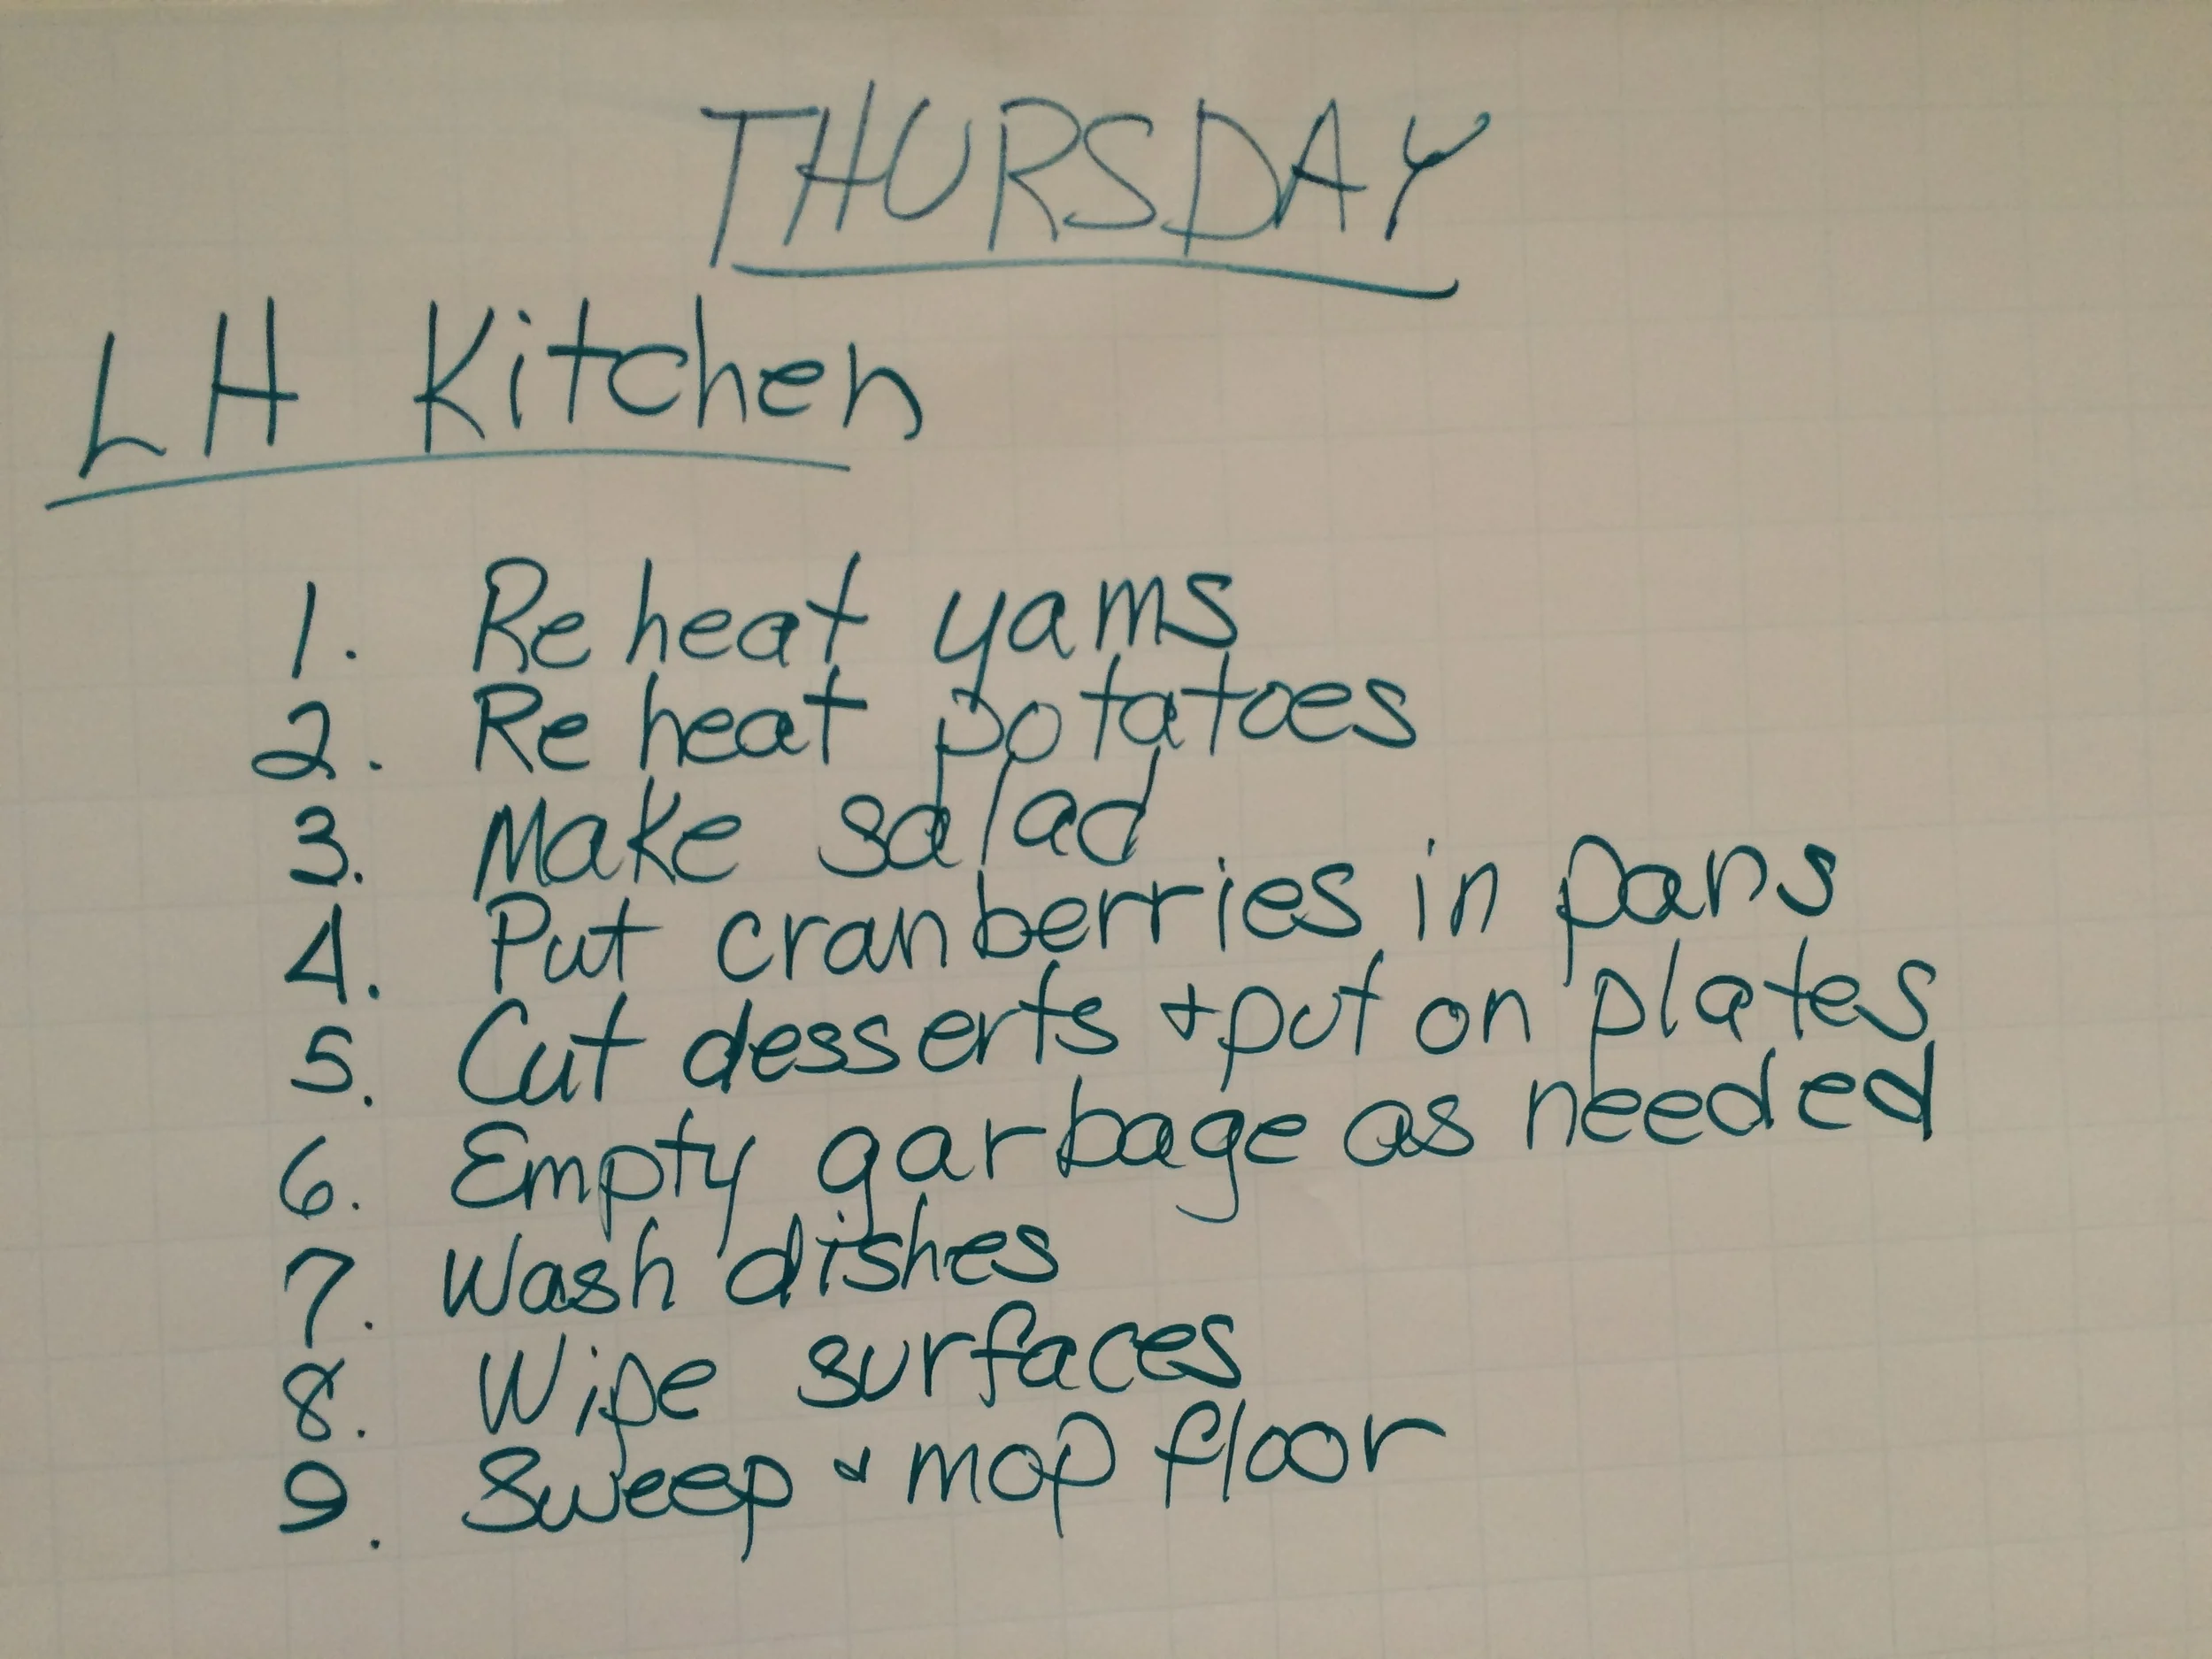 THURSDAY
LH Kitchen
1. Reheat yams
2. Reheat potatoes
3. Make salad
4. Put cranberries in pans
5. Cut desserts + put on plates
6. Empty garbage as needed
7. Wash dishes
8. Wipe surfaces
9. Sweep & mop floor